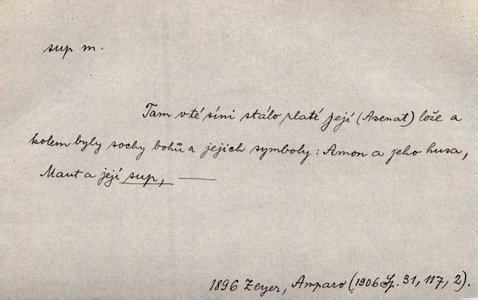 sup m.
Tam v té síni stálo zlaté její (Asenat) lože a
kolem byly sochy bohů a jejich symboly: Amon a jeho husa,
Maut a její sup, —
1896 Zeyer, Amparo (1906 Sp. 31, 117, 2).